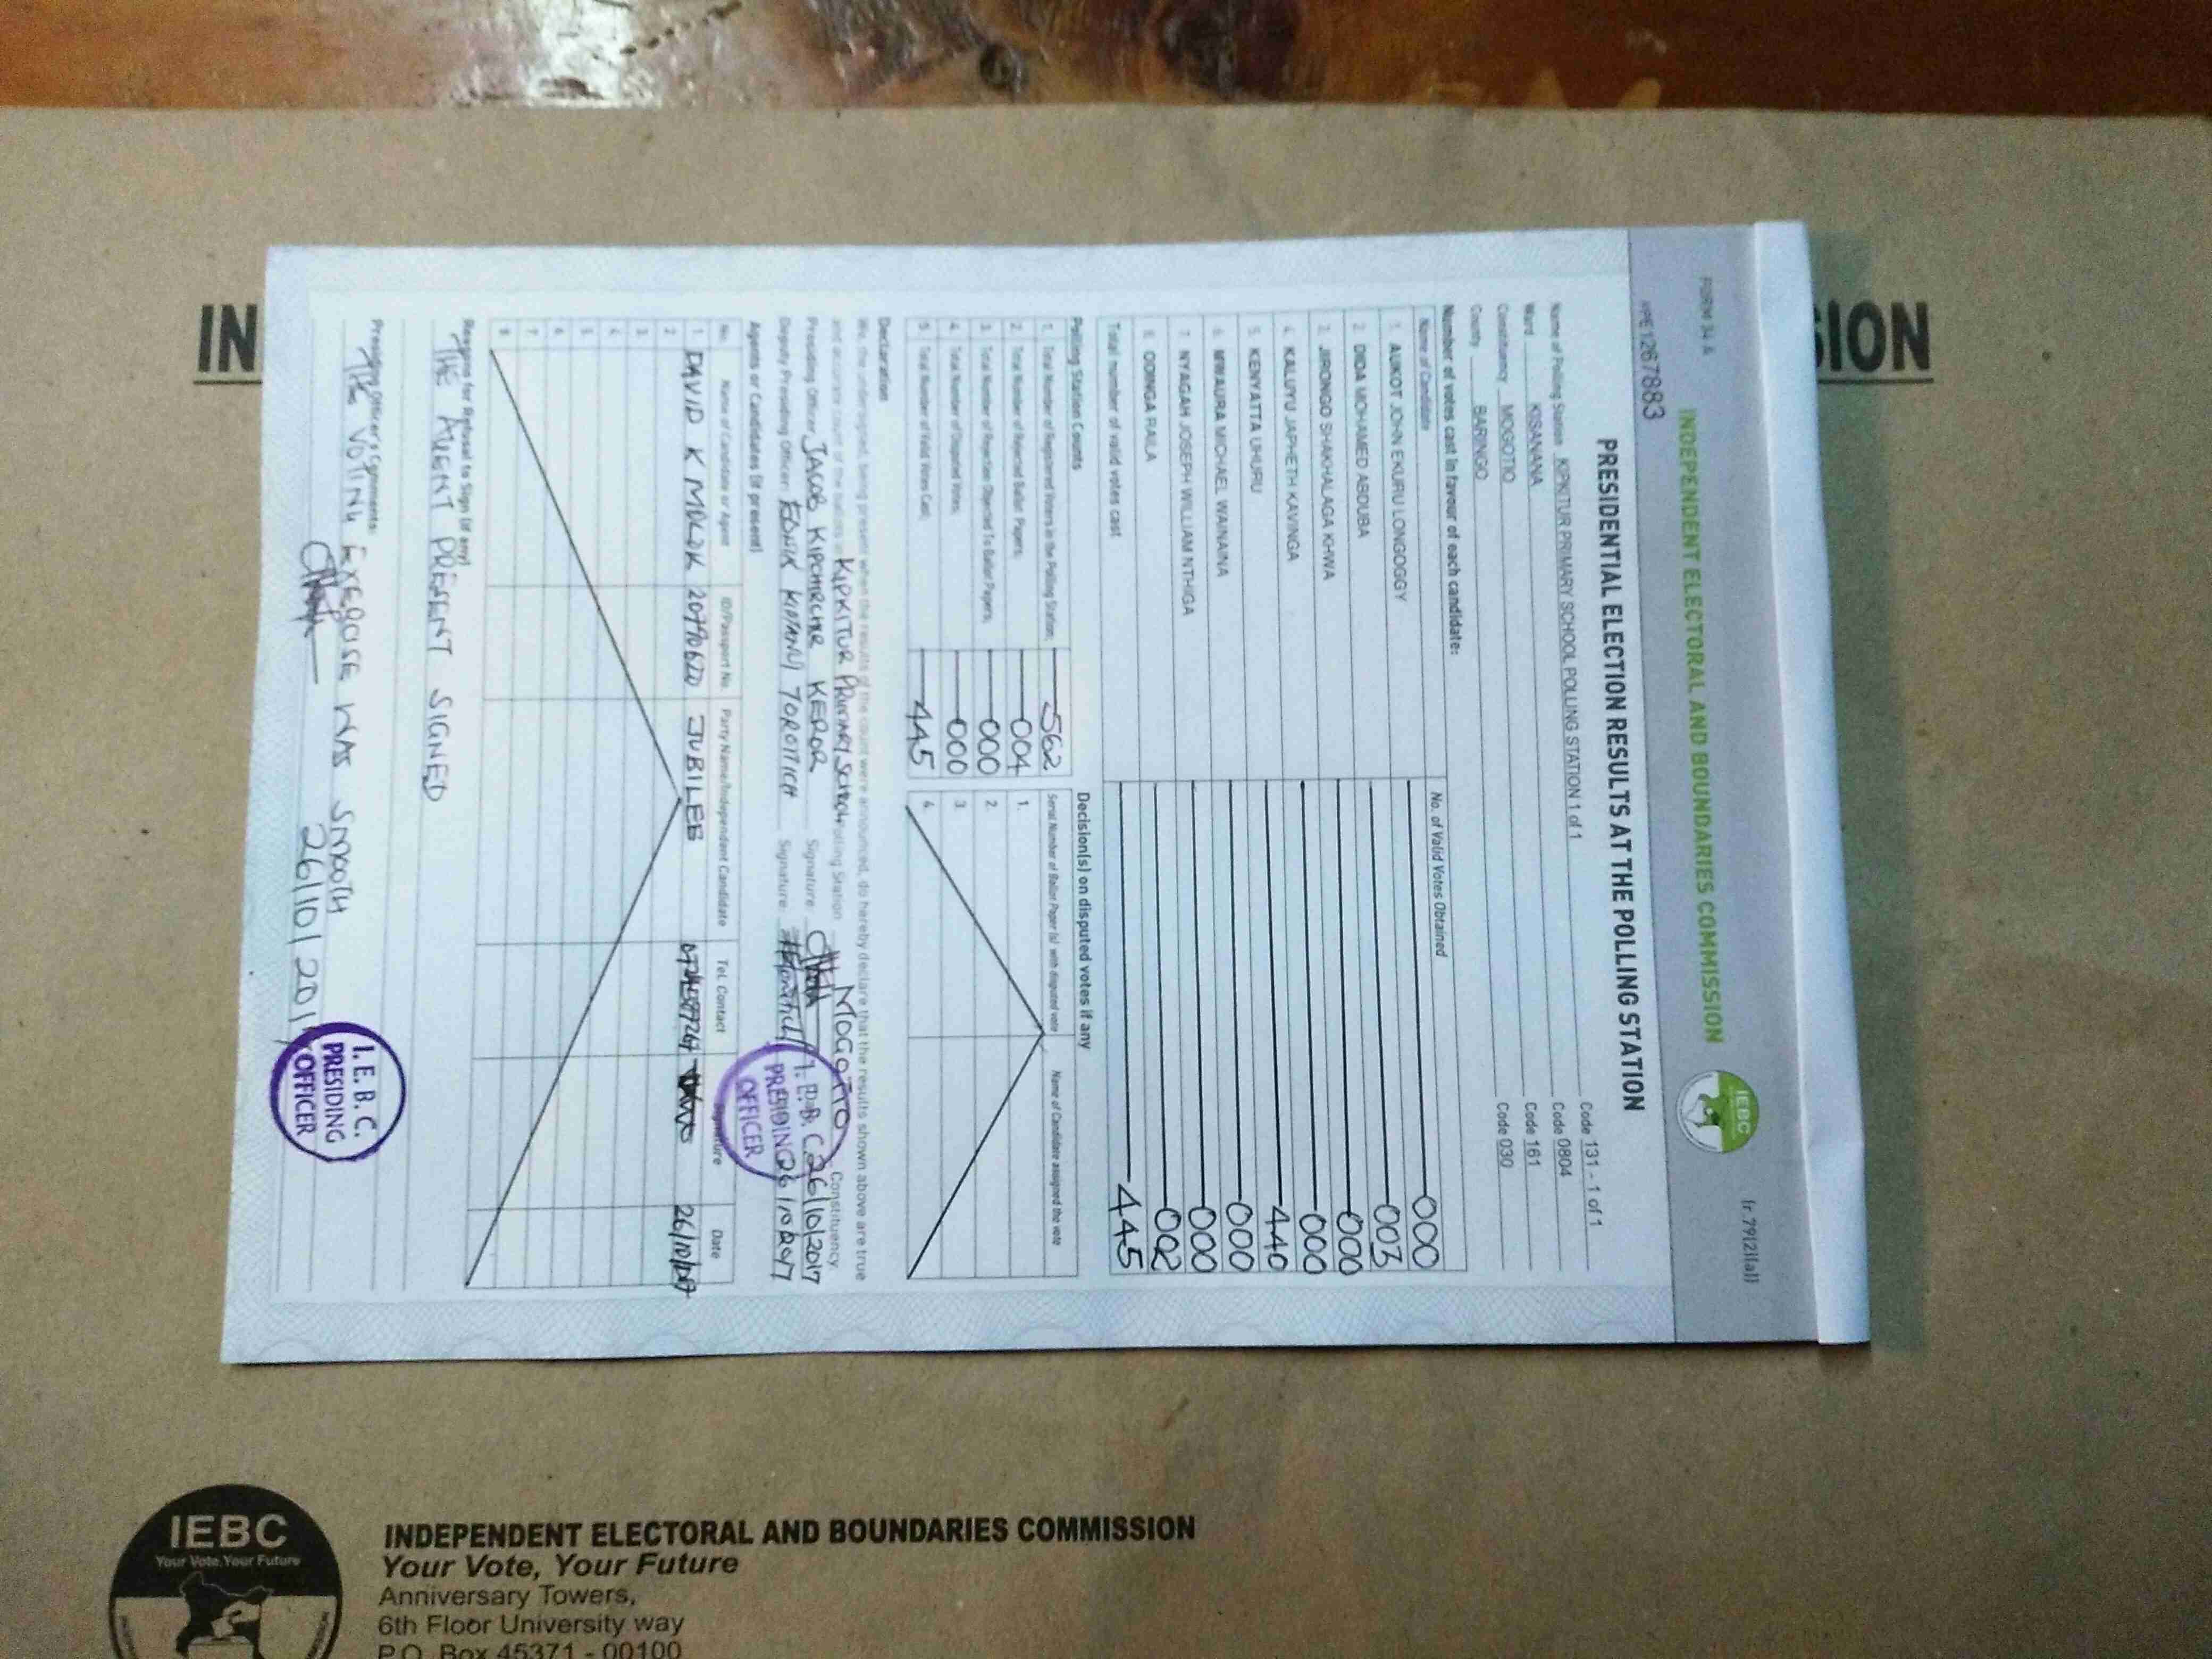 IN
SION
FORM 34 A
(r.79(2)(a))
INDEPENDENT ELECTORAL AND BOUNDARIES COMMISSION
IEBC
1267883
PRESIDENTIAL ELECTION RESULTS AT THE POLLING STATION
Name of Polling Station KIPKITUR PRIMARY SCHOOL POLLING STATION 1 of 1 Code 131 - 1 of 1
Ward KISANANA Code 0804
Constituency MOGOTIO Code 161
County BARINGO Code 030
Number of votes cast in favour of each candidate:
Name of Candidate No. of Valid Votes Obtained
1. AUKOT JOHN EKURU LONGOGGY 000
2. DIDA MOHAMED ABDUBA 003
3. JIRONGO SHAKHALAGA KHWA 000
4. KALUYU JAPHETH KAVINGA 000
5. KENYATTA UHURU 440
6. MWAURA MICHAEL WAINAINA 000
7. NYAGAH JOSEPH WILLIAM NTHIGA 000
8. ODINGA RAILA 002
Total number of valid votes cast 445
Polling Station Counts
1. Total Number of Registered Voters in the Polling Station 562
2. Total Number of Rejected Ballot Papers 004
3. Total Number of Rejection Objected To Ballot Papers 000
4. Total Number of Disputed Votes 000
5. Total Number of Valid Votes Cast 445
Decision(s) on disputed votes if any
Serial Number of Ballot Paper (s) with disputed vote Name of Candidate assigned the vote
1.
2.
3.
4.
Declaration
We, the undersigned, being present when the results of the count were announced, do hereby declare that the results shown above are true
and accurate count of the ballots in KIPKITUR PRIMARY SCHOOL Polling Station MOGOTIO Constituency.
Presiding Officer JACOB KIPCHIRCHIR KEROR Signature 26/10/2017
Deputy Presiding Officer TOROITICH Signature
I. E. B. C.
PRESIDING
OFFICER
Agents or Candidates (if present)
No. Name of Candidate or Agent ID/Passport No. Party Name/Independent Candidate Tel. Contact Signature Date
1 DAVID K 20790620 JUBILEE
2
3
4
5
6
7
8
Reasons for Refusal to Sign (if any)
THE AGENT PRESENT SIGNED
Presiding Officer's Comments:
THE VOTING EXERCISE WAS SMOOTH
26/10/2017
I. E. B. C.
PRESIDING
OFFICER
IEBC
Your Vote, Your Future
INDEPENDENT ELECTORAL AND BOUNDARIES COMMISSION
Your Vote, Your Future
Anniversary Towers,
6th Floor University way
P.O. Box 45371 - 00100